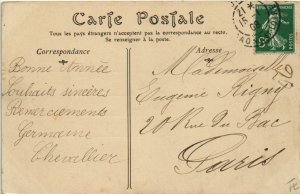 Carte Postale
Tous les pays étrangers n'acceptent pas la correspondance au recto.
Se renseigner à la poste.
Correspondance
Adresse
Bonne Année
Souhaits sincères
Remerciements
Germaine
Chevallier
Mademoiselle
Eugénie
20 Rue du Bac
Paris